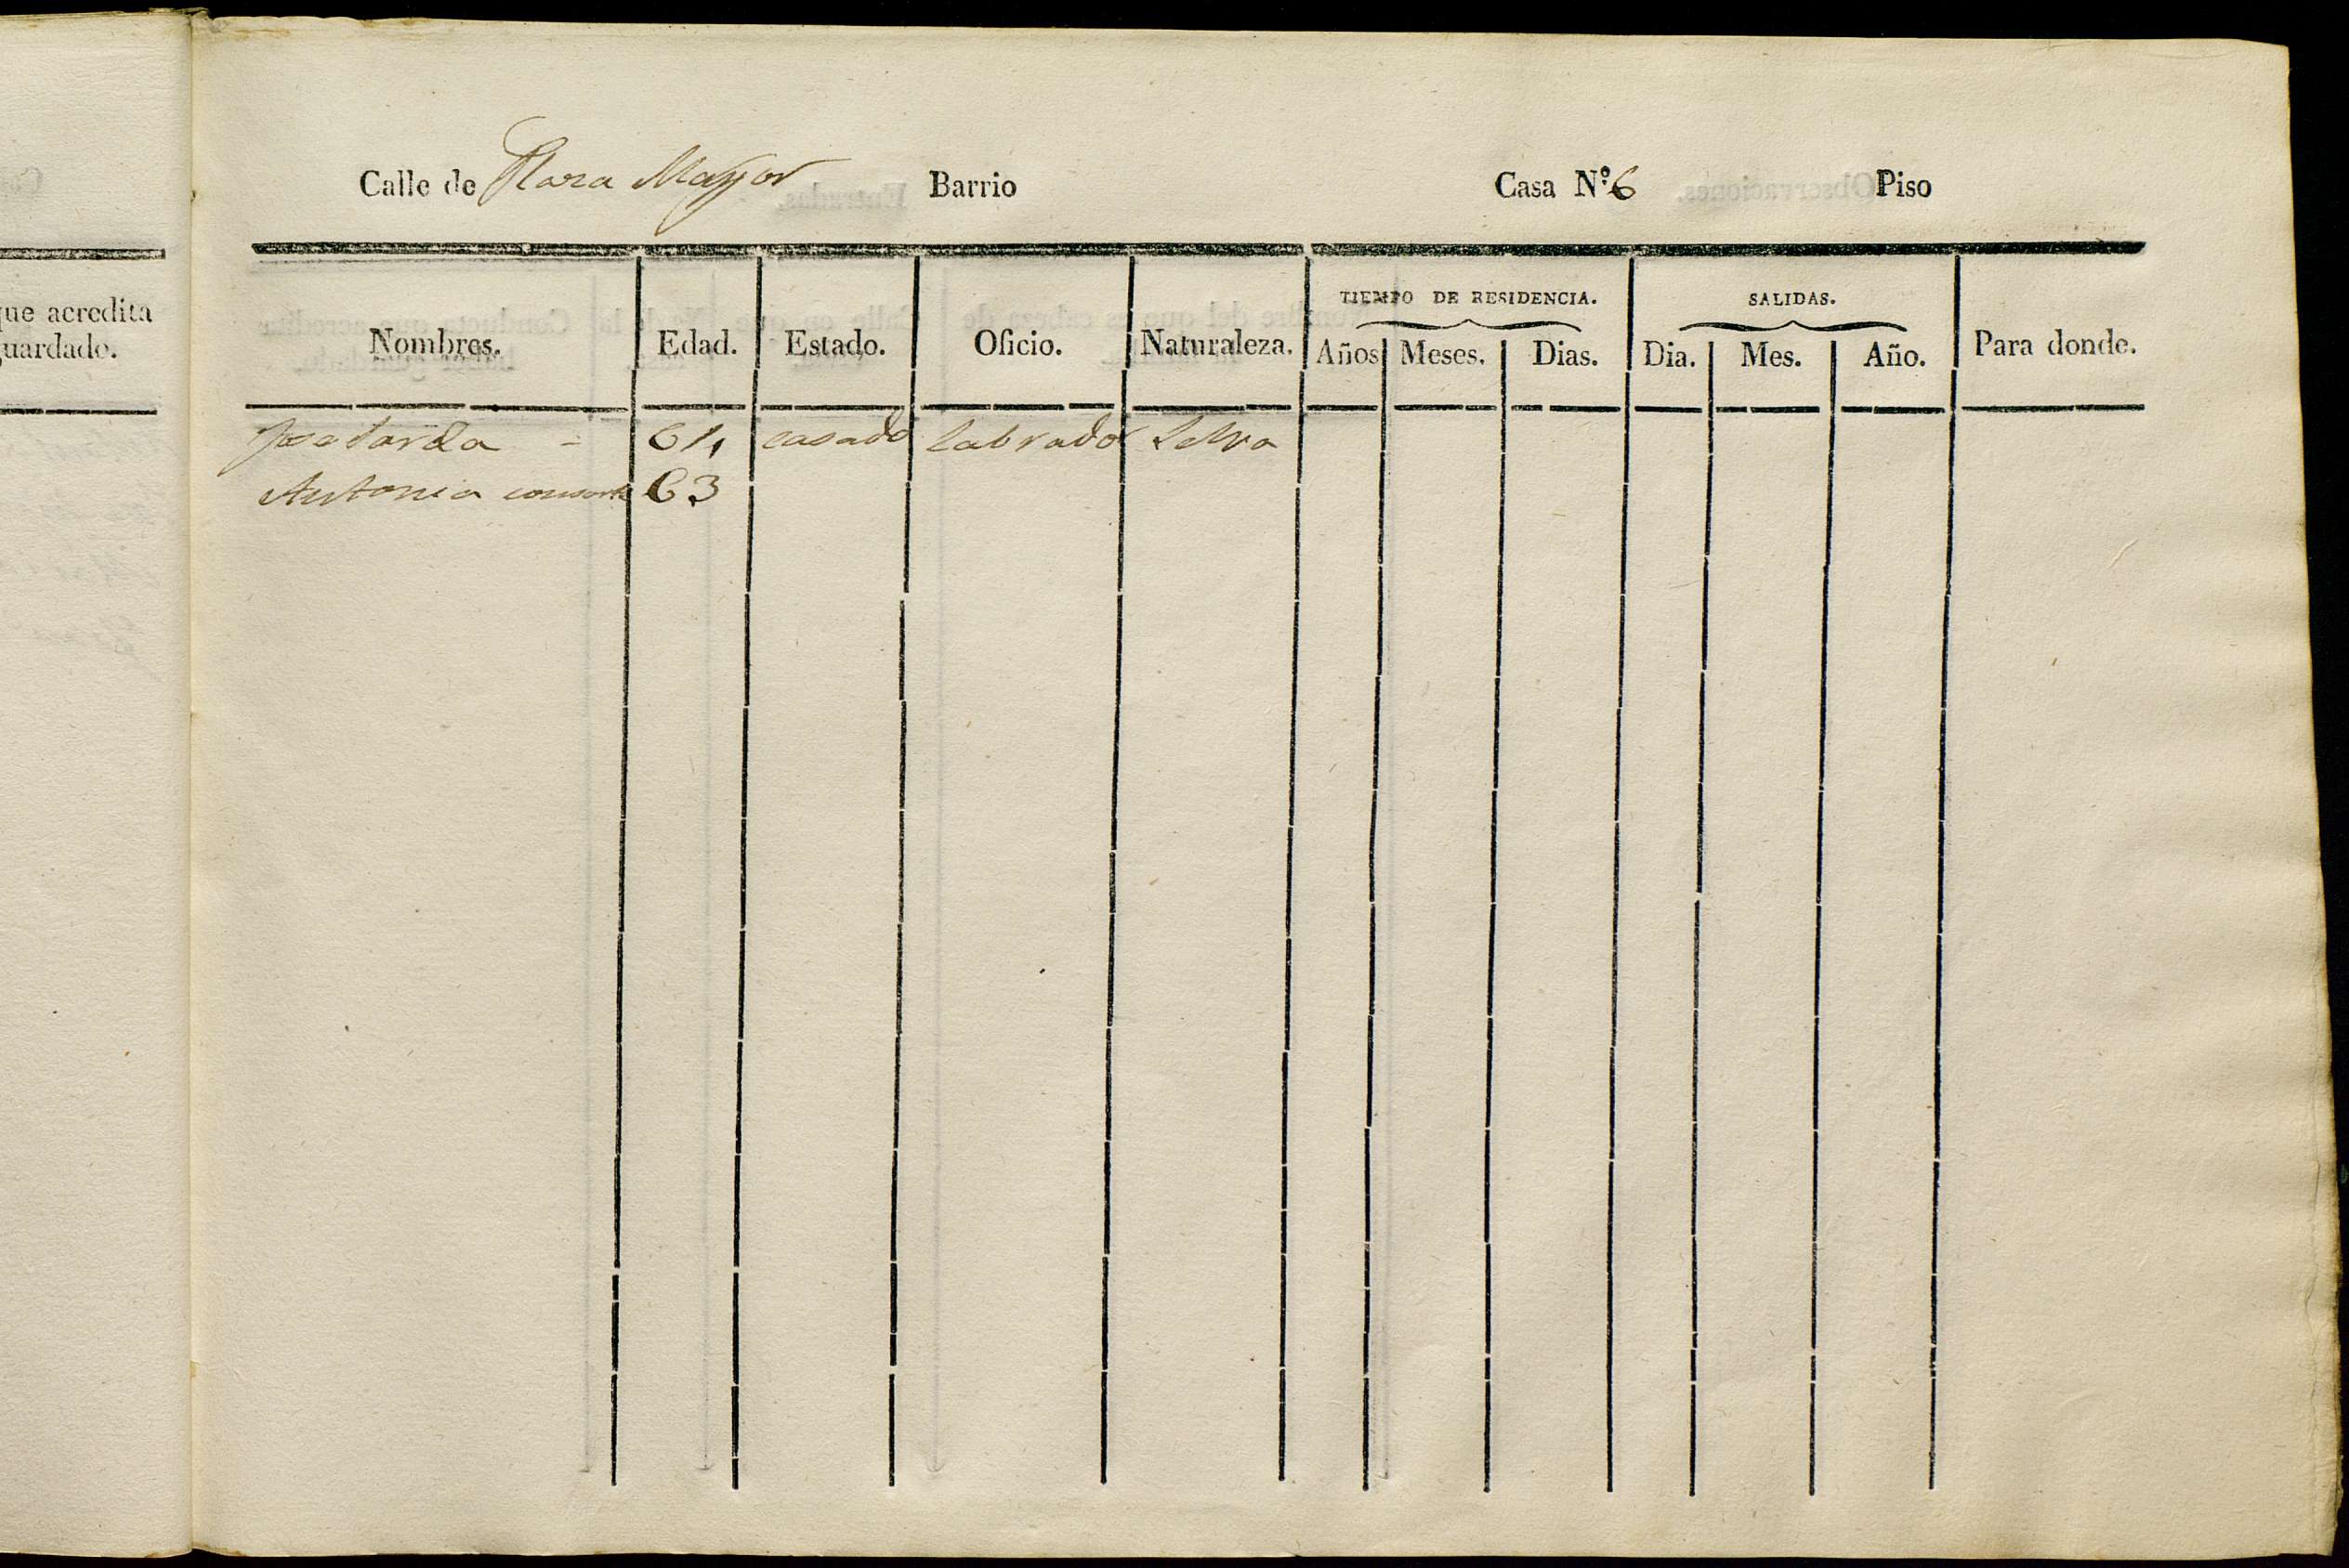 que acredita
guardado.
Calle de Plaza Mayor Barrio Casa N.º 6 Piso
TIEMPO DE RESIDENCIA. SALIDAS.
Nombres. Edad. Estado. Oficio. Naturaleza. Años Meses. Dias. Dia. Mes. Año. Para donde.
64 casado labrador Selva
Antonia consorte 63